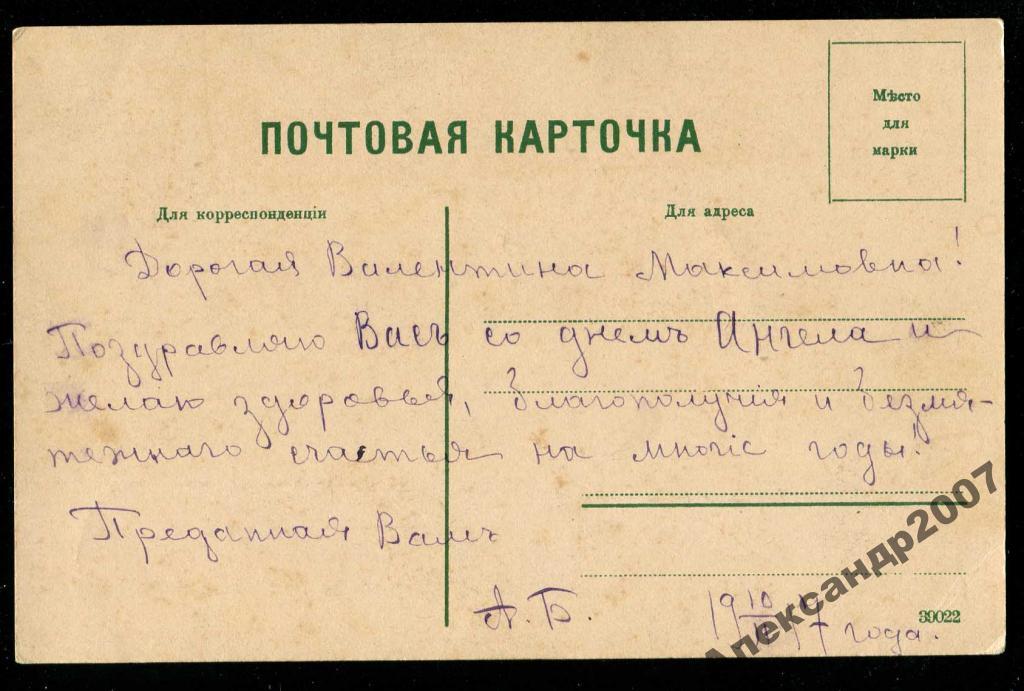 Мѣсто
для
марки
ПОЧТОВАЯ КАРТОЧКА
Для корреспонденціи
Для адреса
Дорогая Валентина Максимовна!
Поздравляю Васъ со днемъ Ангела и
желаю здоровья, благополучія и безмя-
тежнаго счастья на многіе годы!
Преданная Вамъ
А. Б.
19 10/II 17 года.
39022
Александр2007